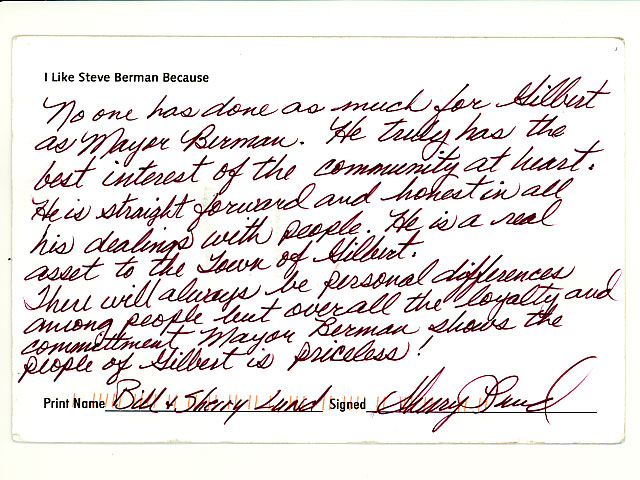 I Like Steve Berman Because
No one has done as much for Gilbert
as Mayor Berman. He truly has the
best interest of the community at heart.
He is straight forward and honest in all
his dealings with people. He is a real
asset to the Town of Gilbert.
There will always be personal differences
among people but overall the loyalty and
committment Mayor Berman shows the
people of Gilbert is priceless!
Print Name Bill & Sherry Lund Signed Sherry Lund